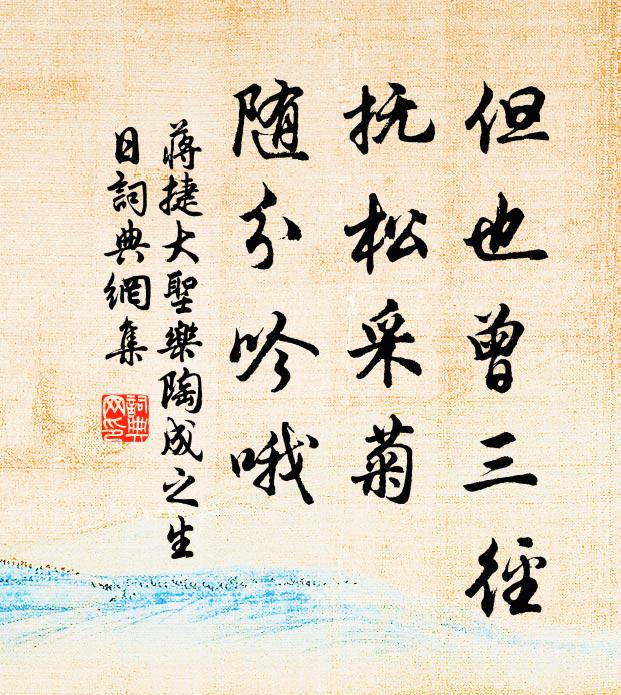 但也曾三徑
抚松采菊
随分吟哦
蔣捷大聖樂陶成之生
日詞典網集
詞典
网印